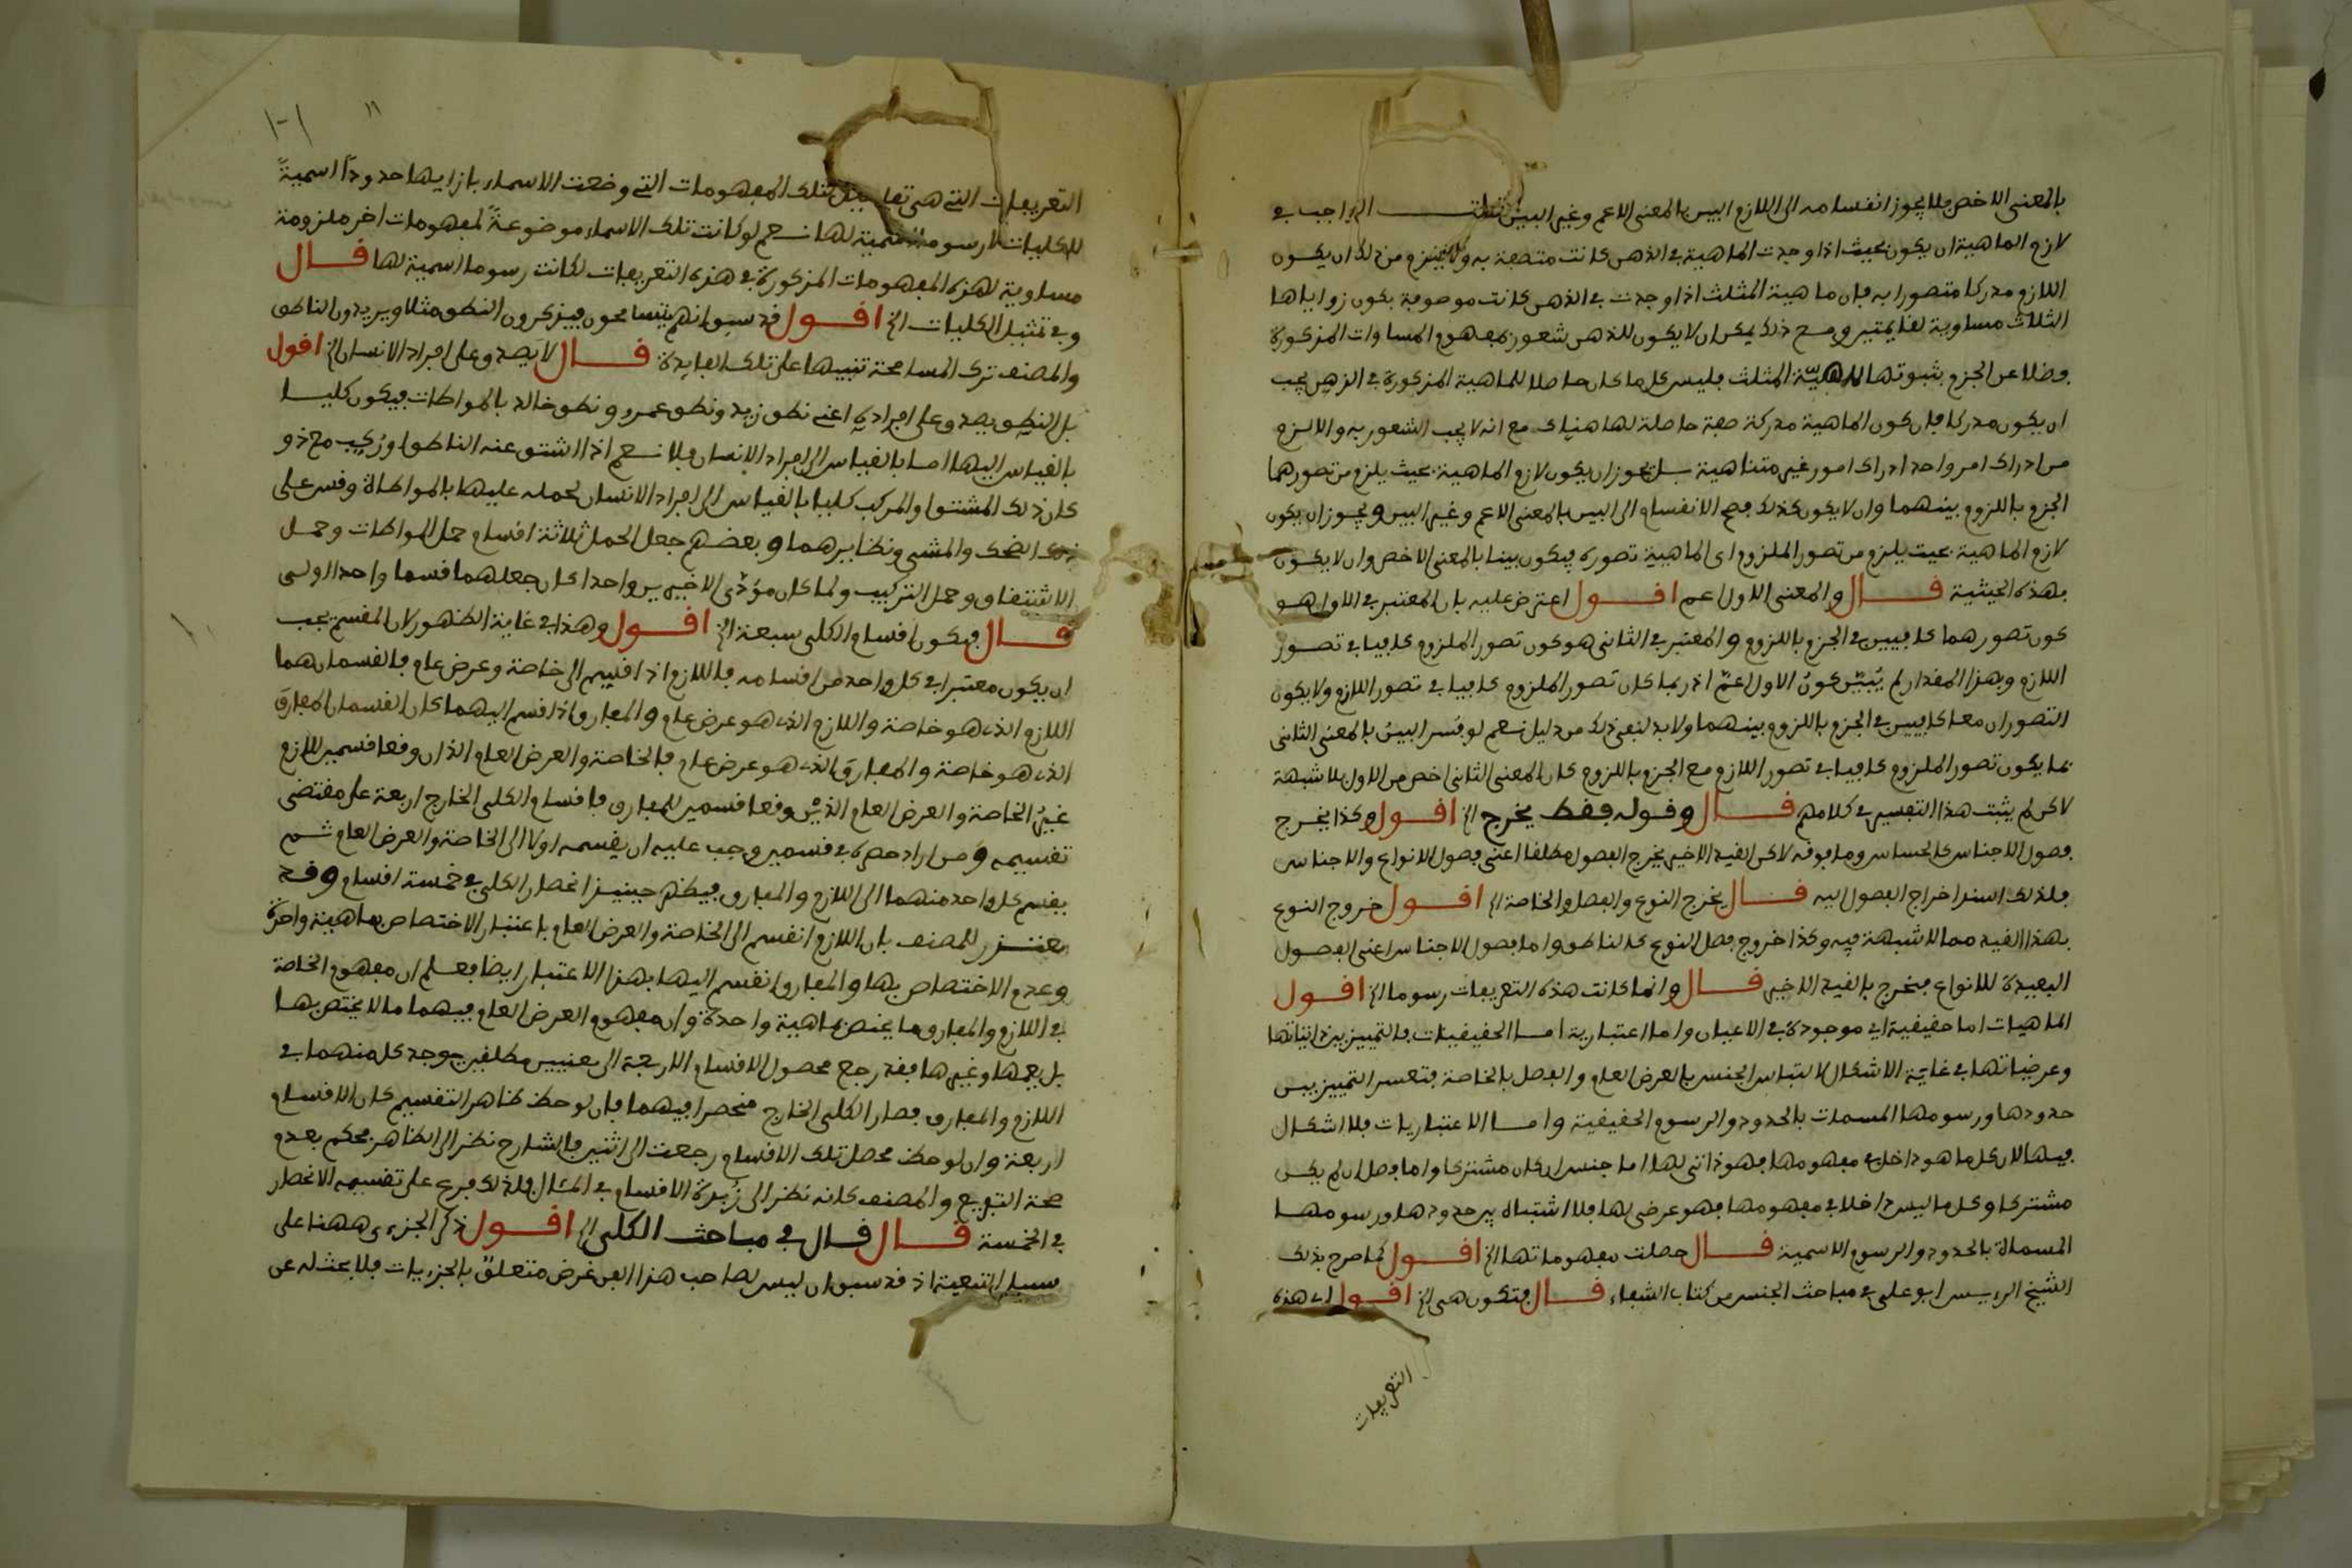 بالمعنى الاخص فلا يجوز انقسامه الى اللازم البين بالمعنى الاعم وغير البين قلت الواجب في
لازم الماهية ان يكون بحيث اذا وجدت الماهية في الذهن كانت متصفة به ولا يلزم من ذلك ان يكون
اللازم مدركا متصورا به فان ماهية المثلث اذا وجدت في الذهن كانت موصوفة بكون زواياها
الثلاث مساوية لقايمتين ومع ذلك يمكن ان لا يكون للذهن شعور بمفهوم المساوات المذكورة
وضلا عن الجزم بثبوتها لماهية المثلث فليس كل ما كان حاصلا للماهية المذكورة في الذهن يجب
ان يكون مدركا فان كون الماهية مدركة صفة حاصلة لها هناك مع انه لا يجب الشعور به والا لزم
من ادراك امر واحد ادراك امور غير متناهية بل يجوز ان يكون لازم الماهية بحيث يلزم من تصورهما
الجزم باللزوم بينهما وان لا يكون كذلك فصح الانقسام الى البين بالمعنى الاعم وغير البين ويجوز ان يكون
لازم الماهية بحيث يلزم من تصور الملزوم اى الماهية تصوره فيكون بينا بالمعنى الاخص وان لا يكون
بهذه الحيثية قال والمعنى الاول اعم اقول اعترض عليه بان المعتبر في الاول هو
كون تصورهما كافيين في الجزم باللزوم والمعتبر في الثانى هو كون تصور الملزوم كافيا في تصور
اللازم وبهذا المقدار لم يُبيّن كونُ الاول اعمّ اذ ربما كان تصور الملزوم كافيا في تصور اللازم ولا يكون
التصوران معا كافيين في الجزم باللزوم بينهما ولا بد لنفى ذلك من دليل نعم لو فسر البينُ بالمعنى الثانى
بما يكون تصور الملزوم كافيا في تصور اللازم مع الجزم باللزوم كان المعنى الثانى اخص من الاول بلا شبهة
لاكن لم يثبت هذا التفسير في كلامهم قال وقوله فقط يخرج الخ اقول وكذا يخرج
فصول الاجناس كالحساس وما فوقه لاكن القيد الاخير يخرج الفصول مطلقا اعنى فصول الانواع والاجناس
فلذلك اسند اخراج الفصول اليه قال يخرج النوع والفصل والخاصة الخ اقول خروج النوع
بهذا القيد مما لا شبهة فيه وكذا خروج فصل النوع كالناطق واما فصول الاجناس اعنى الفصول
البعيدة للانواع فتخرج بالقيد الاخير قال وانما كانت هذه التعريفات رسوما الخ اقول
الماهيات اما حقيقية اى موجودة في الاعيان واما اعتبارية اما الحقيقيات فالتمييز بين ذاتياتها
وعرضياتها في غاية الاشكال لالتباس الجنس بالعرض العام والفصل بالخاصة فتعسر التمييز بين
حدودها ورسومها المسمات بالحدود والرسوم الحقيقية واما الاعتباريات فلا اشكال
فيها لان كل ما هو داخل في مفهومها فهو ذاتى لها اما جنس ان كان مشتركا واما فصل ان لم يكن
مشتركا وكل ما ليس داخلا في مفهومها فهو عرضى لها فلا اشتباه بين حدودها ورسومها
المسماة بالحدود والرسوم الاسمية قال حصلت مفهوماتها الخ اقول كما صرح بذلك
الشيخ الرئيس ابو على في مباحث الجنس من كتاب الشفاء قال فتكون هى الخ اقول اى هذه
التعريفات
١٠١
١١
التعريفات التى هى تفاصيل تلك المفهومات التى وضعت الاسماء بازايها حدودًا اسميةً
للكليات لا رسوما اسمية لها نعم لو كانت تلك الاسماء موضوعةً لمفهومات اخر ملزومة
مساوية لهذه المفهومات المذكورة في هذه التعريفات لكانت رسوما اسمية لها قال
وفي تمثيل الكليات الخ اقول قد سبق انهم يتسامحون فيذكرون النطق مثلا ويريدون الناطق
والمصنف ترك المسامحة تنبيها على تلك الفايدة قال لا يَصدق على افراد الانسان الخ اقول
بل النطق يصدق على افراده اعنى نطق زيد ونطق عمرو ونطق خالد بالمواطات فيكون كليا
بالقياس اليها اما بالقياس الى افراد الانسان فلا نعم اذا اشتق عنه الناطق او رُكِب مع ذو
كان ذلك المشتق او المركب كليا بالقياس الى افراد الانسان لحمله عليها بالمواطاة وقس على
ذلك الضحك والمشى ونظايرهما وبعضهم جعل الحمل ثلاثة اقسام حمل المواطات وحمل
الاشتقاق وحمل التركيب ولما كان مؤدّى الاخيرين واحدا كان جعلهما قسما واحدا اولى
قال فيكون اقسام الكلى سبعة الخ اقول وهذا في غاية الظهور لان المقسم يجب
ان يكون معتبرا في كل واحد من اقسامه فاللازم اذا قسم الى خاصة وعرض عام فالقسمان هما
اللازم الذى هو خاصة واللازم الذى هو عرض عام والمفارق اذا قسم اليهما كان القسمان المفارق
الذى هو خاصة والمفارق الذى هو عرض عام فالخاصة والعرض العام الذان وقعا قسمين للازم
غيرُ الخاصة والعرض العام الذين وقعا قسمين للمفارق فاقسام الكلى الخارج اربعة على مقتضى
تقسيمه ومن اراد حصره في قسمين وجب عليه ان يقسمه اولا الى الخاصة والعرض العام ثم
يقسم كل واحد منهما الى اللازم والمفارق فيظهر حينيذ انحصار الكلى في خمسة اقسام وقد
يعتذر للمصنف بان اللازم انقسم الى الخاصة والعرض العام باعتبار الاختصاص بماهية واحدة
وعدم الاختصاص بها والمفارق انقسم اليها بهذا الاعتبار ايضا فعلم ان مفهوم الخاصة
في اللازم والمفارق ما يختص بماهية واحدة وان مفهوم العرض العام فيهما ما لا يختص بها
بل يعمها وغيرها فقد رجع محصول الاقسام الاربعة الى معنيين مطلقين يوجد كل منهما في
اللازم والمفارق فصار الكلى الخارج منحصرا فيهما فان لوحظ ظاهر التقسيم كان الاقسام
اربعة وان لوحظ محصل تلك الاقسام رجعت الى اثنين فالشارح نظر الى الظاهر فحكم بعدم
صحة التفريع والمصنف كانه نظر الى زُبدة الاقسام في المئال فلذلك فرع على تقسيمه الانحصار
في الخمسة قال قال في مباحث الكلى الخ اقول ذكر الجزءى ههنا على
سبيل التبعية اذ قد سبق ان ليس لصاحب هذا الفن غرض متعلق بالجزءيات فلا بحث له عن